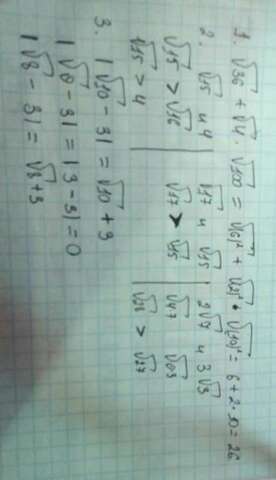 1. √36 + √4 · √100 = √(6)² + √(2)² · √(10)² = 6 + 2 · 10 = 26
2. √15 и 4 | √17 и √15 | 2√7 и 3√3
√15 > √16 | √17 > √15 | √47 √03
√15 > 4 | √28 > √27
3. |√10 - 3| = √10 + 3
|√9 - 3| = |3 - 3| = 0
|√8 - 3| = √8 + 3